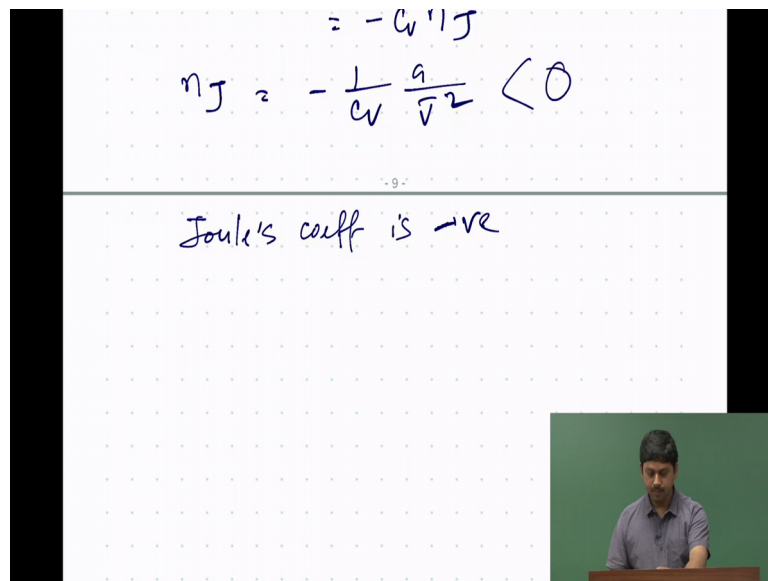 = - Cv ηJ
ηJ = - 1/Cv a/V̄² < 0
- 9 -
Joule's coeff is -ve